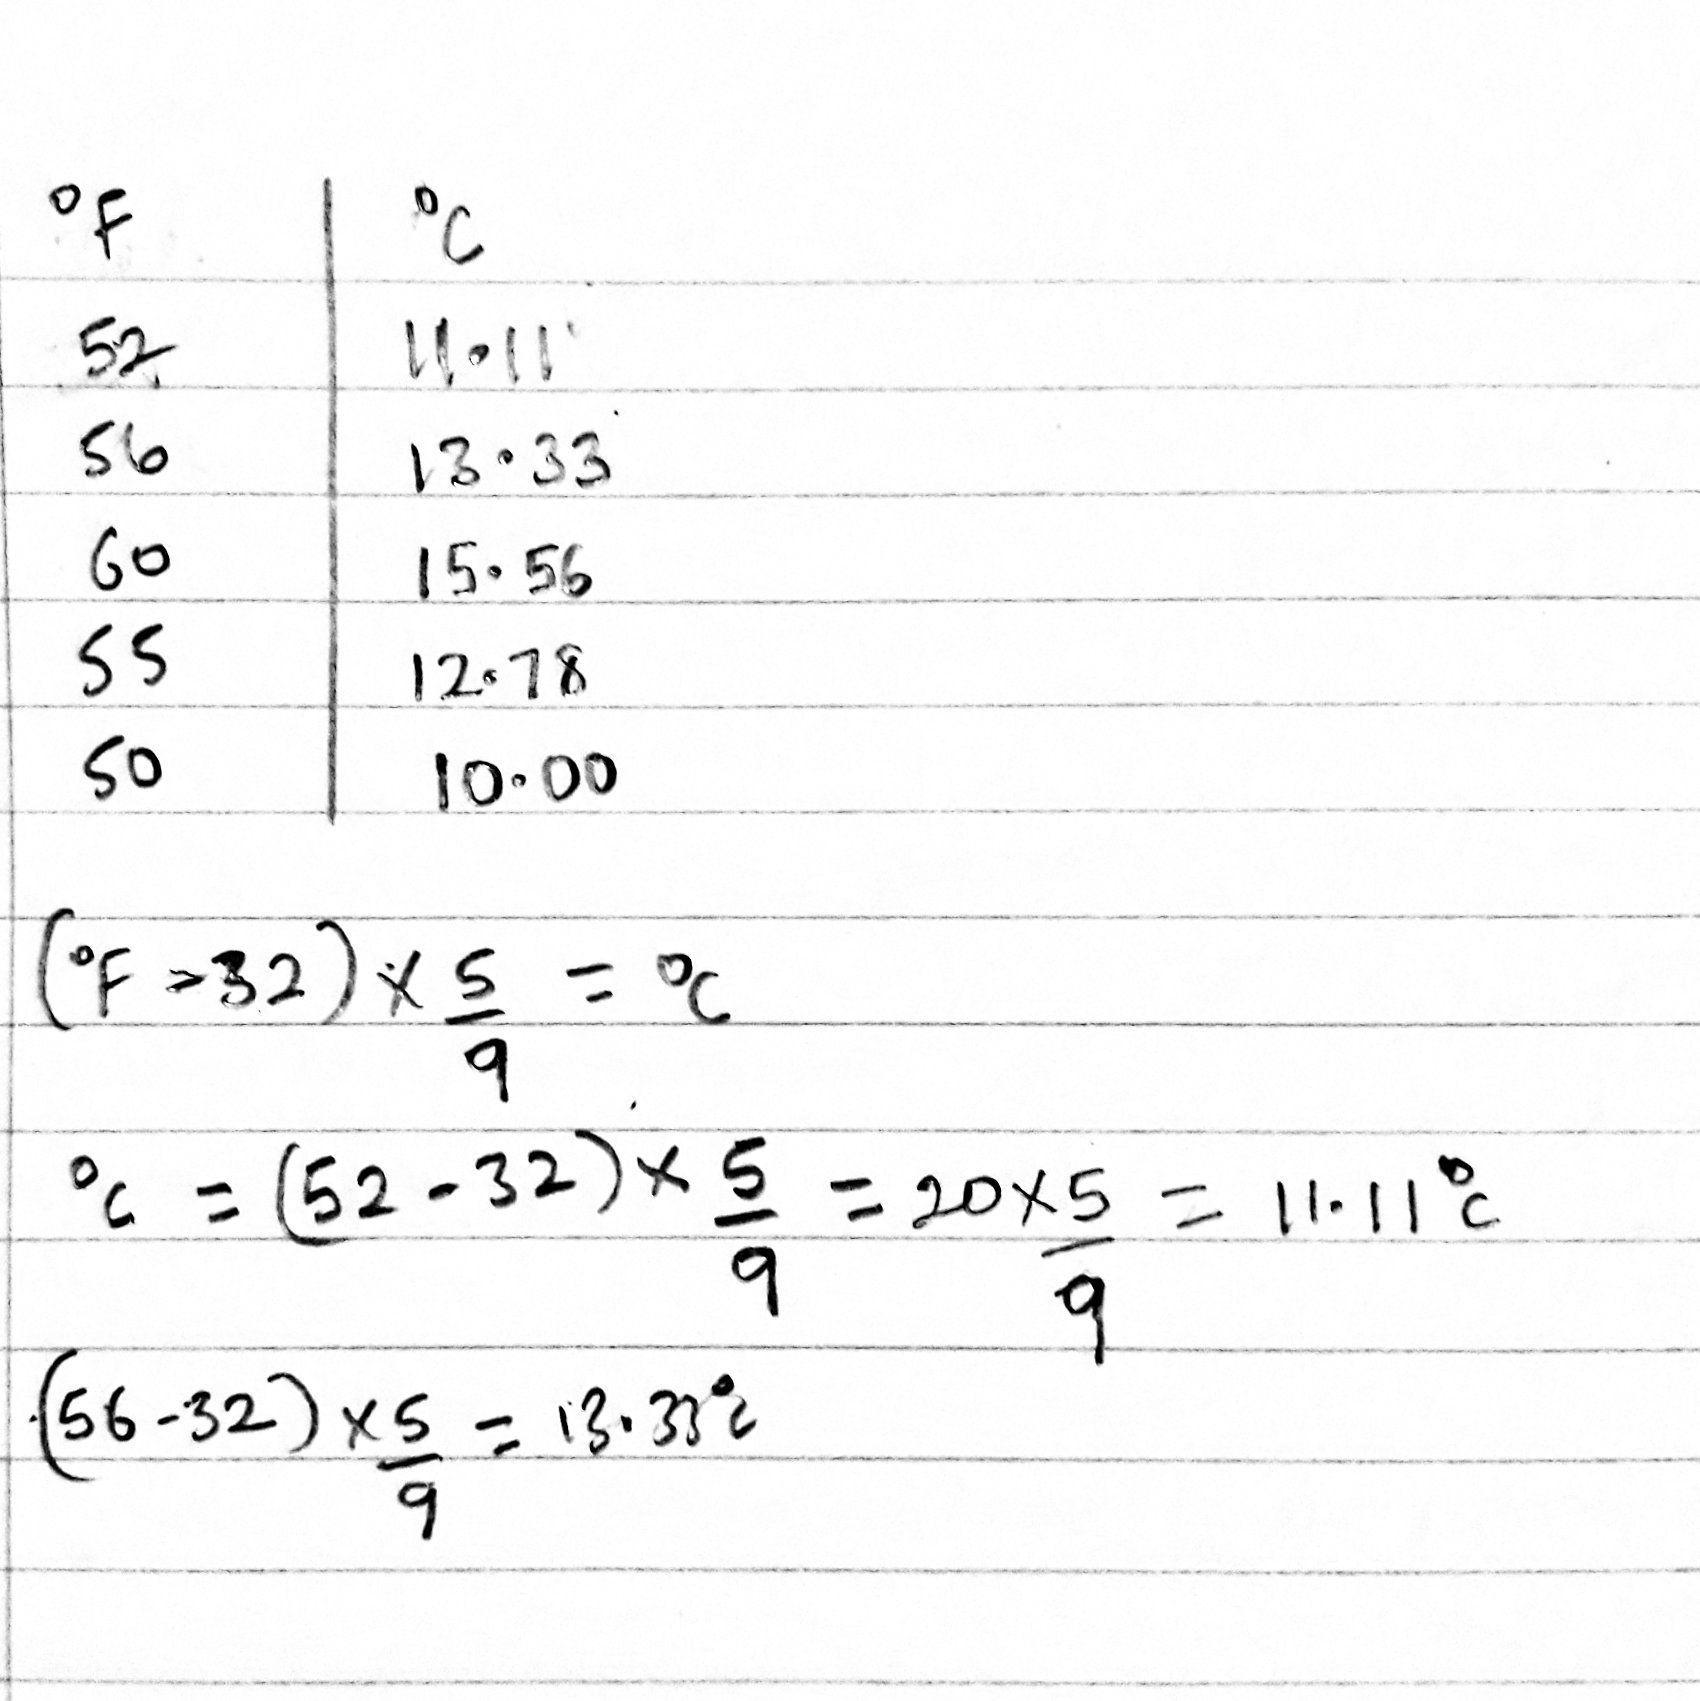 °F °C
52 11.11
56 13.33
60 15.56
55 12.78
50 10.00
(°F - 32) × 5/9 = °C
°C = (52 - 32) × 5/9 = 20 × 5/9 = 11.11°C
(56 - 32) × 5/9 = 13.33°C